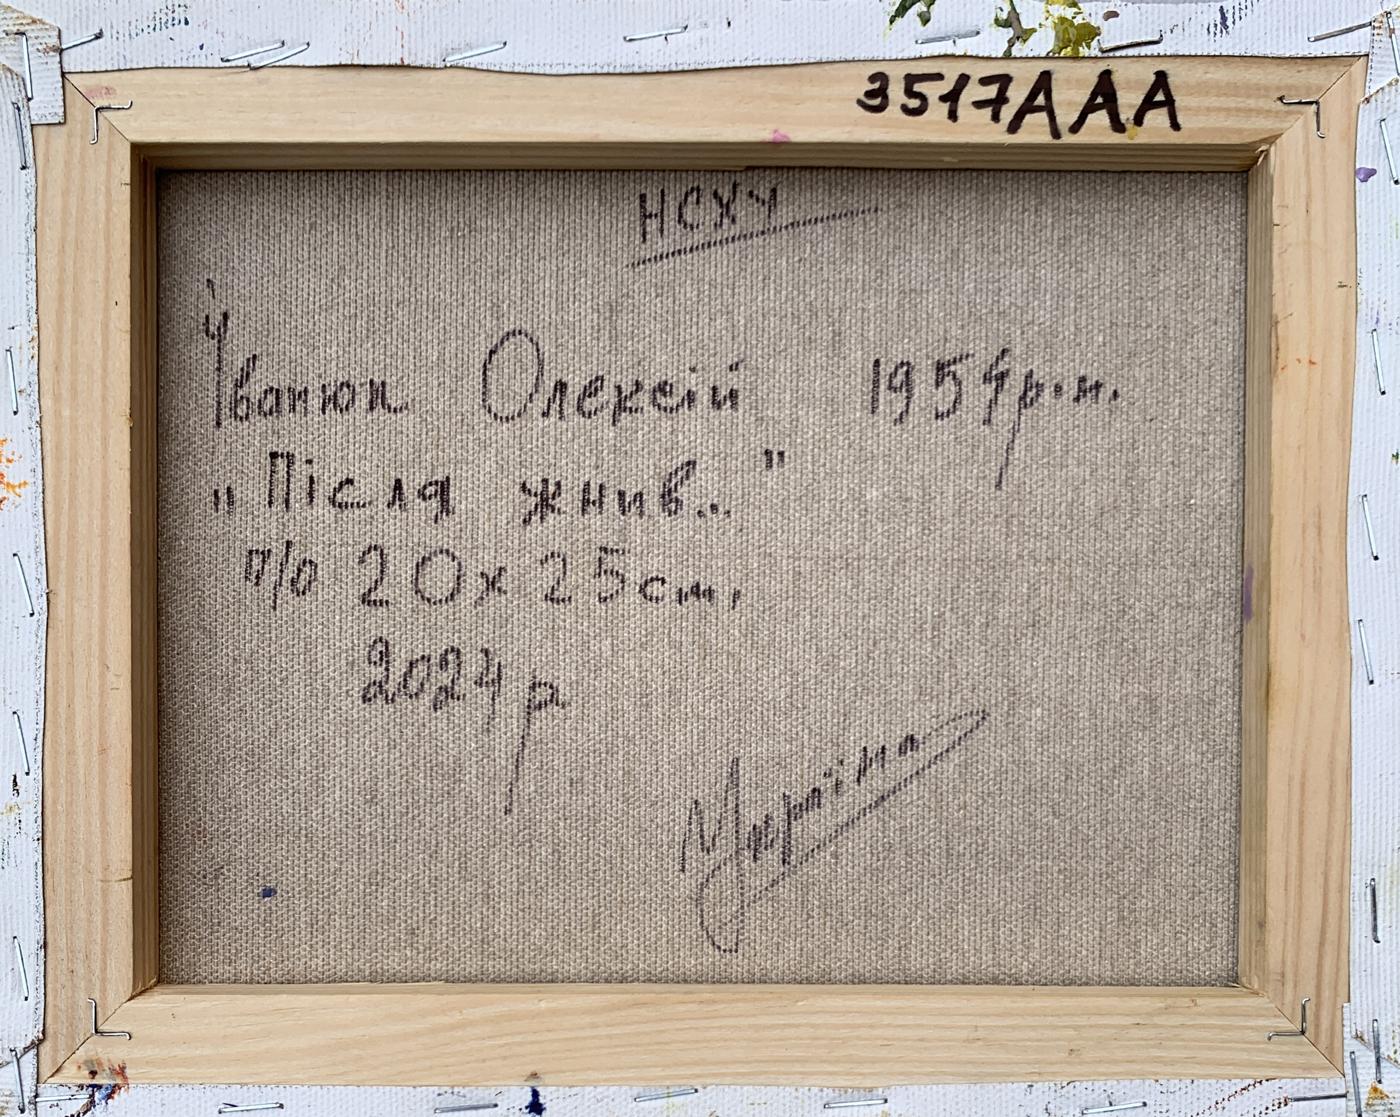 3517AAA
НСХУ
Іванюк Олексій 1954 р.н.
„Після жнив..."
п/о 20х25см,
2024 р
Україна